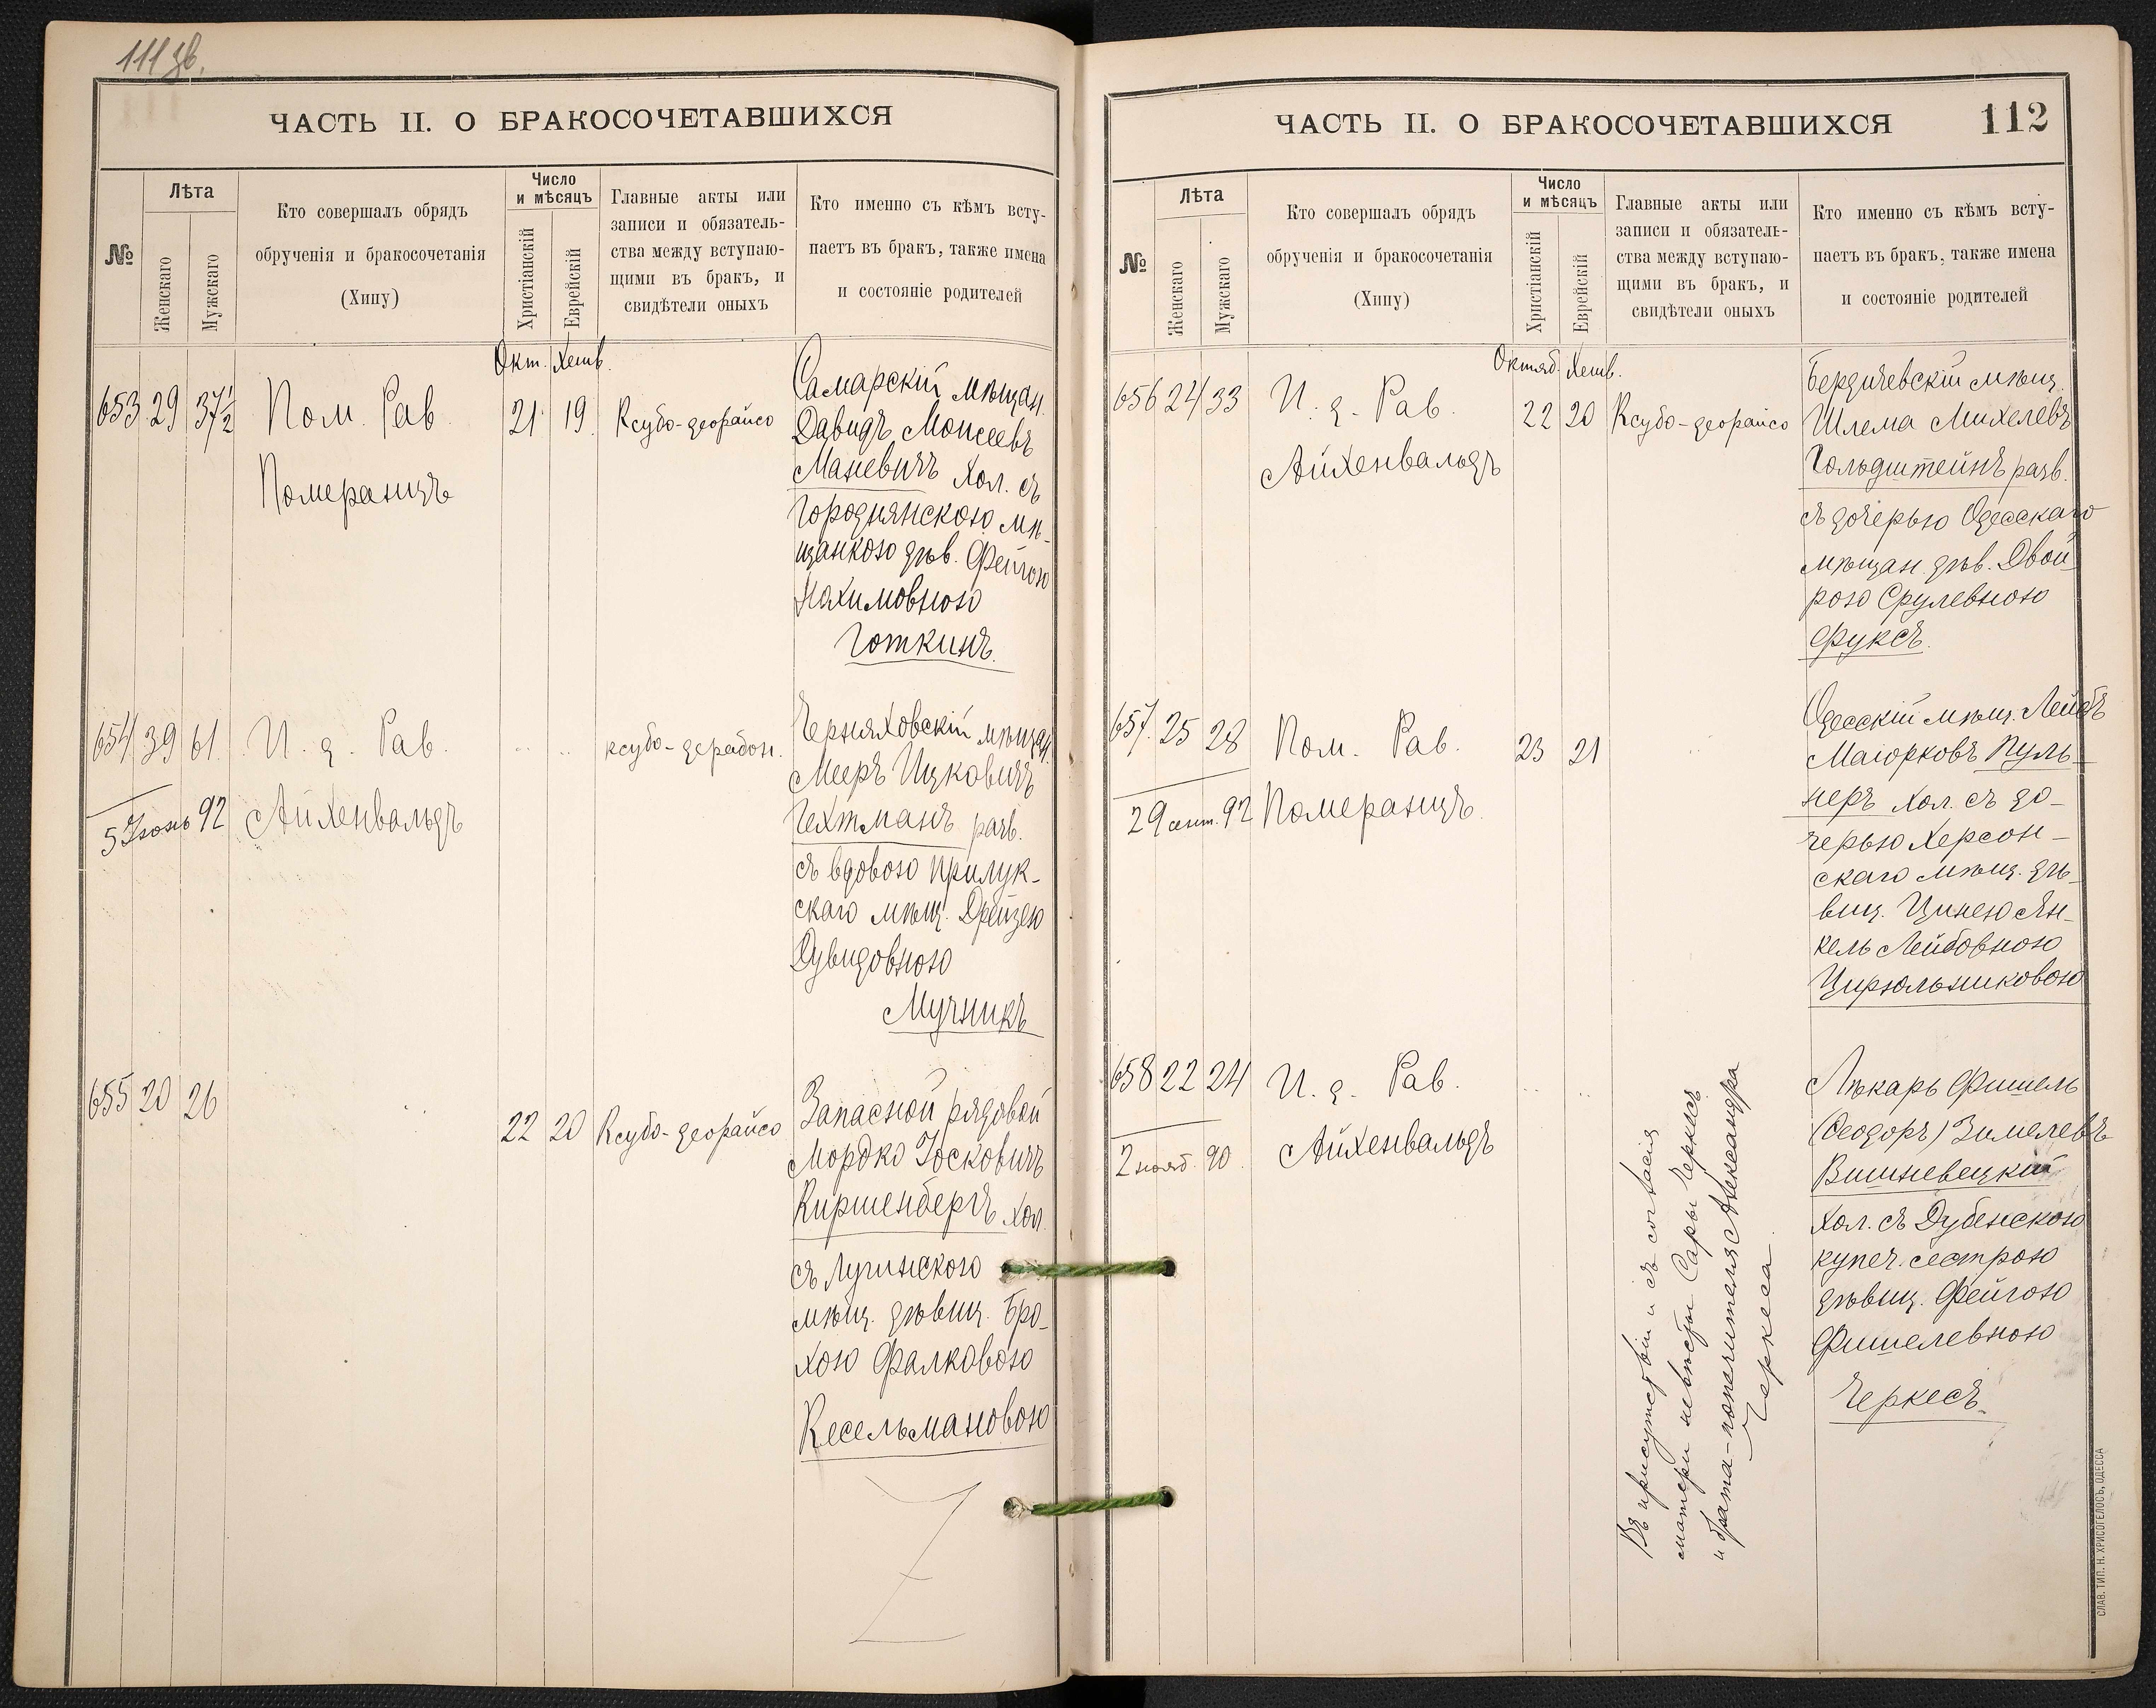 111 зв.
ЧАСТЬ II. О БРАКОСОЧЕТАВШИХСЯ
№
Лѣта
Женскаго
Мужскаго
Кто совершалъ обрядъ
обрученія и бракосочетанія
(Хипу)
Число
и мѣсяцъ
Христіанскій
Еврейскій
Главные акты или
записи и обязатель-
ства между вступаю-
щими въ бракъ, и
свидѣтели оныхъ
Кто именно съ кѣмъ всту-
паетъ въ бракъ, также имена
и состояніе родителей
Окт. Хешв.
653 29 37 1/2
Пом. Рав.
Померанцъ
21 19
Ксубо-деорайсо
Самарскій мѣщан.
Давидъ Моисеевъ
Маневичъ хол. съ
Городнянскою мѣ-
щанкою дѣв. Фейгою
Нахимовною
Готкинъ.
654 39 61.
5 Іюнь 92
И. д. Рав.
Айхенвальдъ
" "
ксубо-дерабон.
Черняховскій мѣщан.
Мееръ Ицковичъ
Гехтманъ разв.
съ вдовою Прилук-
скаго мѣщ. Дрейзею
Дувидовною
Мучникъ
655 20 26
"
22 20
Ксубо-деорайсо
Запасной рядовой
Мордко Іосковичъ
Киршенбергъ хол.
съ Лугинскою
мѣщ. дѣвиц. Бро-
хою Фалковою
Кесельмановою
ЧАСТЬ II. О БРАКОСОЧЕТАВШИХСЯ
112
№
Лѣта
Женскаго
Мужскаго
Кто совершалъ обрядъ
обрученія и бракосочетанія
(Хипу)
Число
и мѣсяцъ
Христіанскій
Еврейскій
Главные акты или
записи и обязатель-
ства между вступаю-
щими въ бракъ, и
свидѣтели оныхъ
Кто именно съ кѣмъ всту-
паетъ въ бракъ, также имена
и состояніе родителей
Октяб. Хешв.
656 24 33
И. д. Рав.
Айхенвальдъ
22 20
Ксубо-деорайсо
Бердичевскій мѣщ.
Шлема Михелевъ
Гольдштейнъ разв.
съ дочерью Одесскаго
мѣщан. дѣв. Двой-
рою Срулевною
Фуксъ.
657. 25 28
29 сент. 92
Пом. Рав.
Померанцъ.
23 21
"
Одесскій мѣщ. Лейбъ
Маіорковъ Пуль-
неръ хол. съ до-
черью Херсон-
скаго мѣщ. дѣ-
виц. Цинею Ян-
кель Лейбовною
Цирюльниковою
658 22 24
2 нояб. 90.
И. д. Рав.
Айхенвальдъ
" "
Въ присутствіи и съ согласія
матери невѣсты Сары Черкесъ
и брата-попечителя Александра
Черкеса.
Лѣкарь Фишель
(Ѳеодоръ) Зимелевъ
Вишневецкій
хол. съ Дубенскою
купеч. сестрою
дѣвиц. Фейгою
Фишелевною
Черкесъ.
СЛАВ. ТИП. Н. ХРИСОГЕЛОСЪ, ОДЕССА